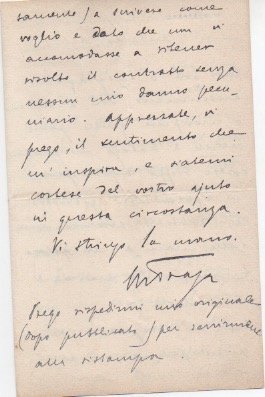 samente) a scrivere come
voglio e dato che un vi
accomodasse a ritener
risolto il contratto senza
nessun mio danno pecu-
niario. Apprezzate, vi
prego, il sentimento che
m'inspira, e siatemi
cortese del vostro ajuto
in questa circostanza.
Vi stringo la mano.
Prego rispedirmi mio originale
(dopo pubblicato) per servirmene
alla ristampa.